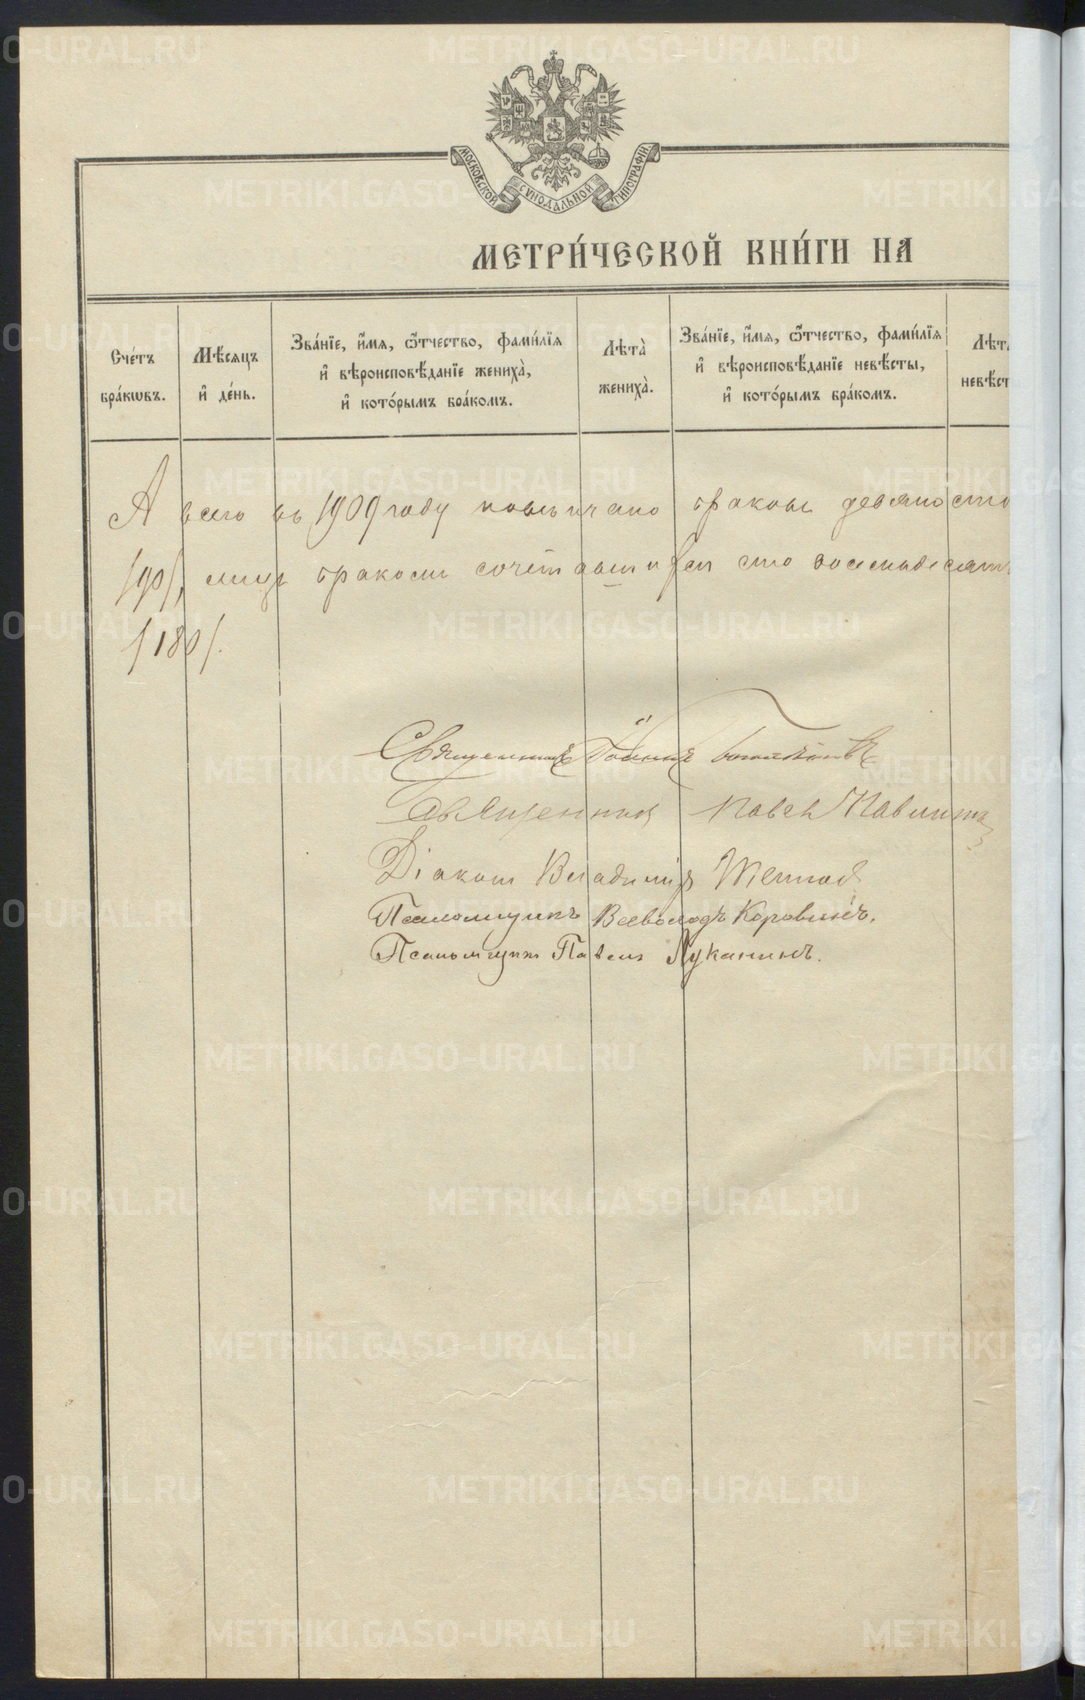 МОСКОВСКОЙ СѴНОДАЛЬНОЙ ТИПОГРАФІИ.
МЕТРИ́ЧЕСКОЙ КНИ́ГИ НА
Сче́тъ бра́кѡвъ.
Мѣ́сяцъ и҆ де́нь.
Зва́нїе, и҆́мѧ, ѻ҆́тчество, фами́лїѧ и҆ вѣроисповѣ́данїе жениха̀, и҆ кото́рымъ бра́комъ.
Лѣта̀ жениха̀.
Зва́нїе, и҆́мѧ, ѻ҆́тчество, фами́лїѧ и҆ вѣроисповѣ́данїе невѣ́сты, и҆ кото́рымъ бра́комъ.
А всего въ 1909 году повѣнчано браковъ девяносто
/90/, лицъ бракомъ сочетавшихся сто восемьдесятъ
/180/.
Священникъ Іоаннъ
Священникъ Павелъ
Діаконъ Владиміръ
Псаломщикъ Всеволодъ Коровинъ.
Псаломщикъ Павелъ Луканинъ.
METRIKI.GASO-URAL.RU